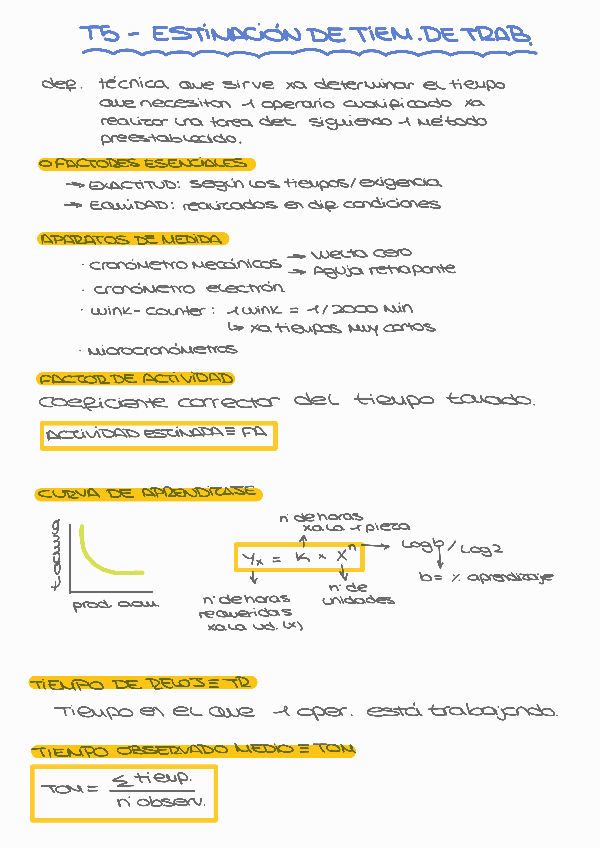 T5 - ESTIMACIÓN DE TIEM. DE TRAB.
def. técnica que sirve xa determinar el tiempo
que necesitan 1 operario cualificado xa
realizar una tarea det. siguiendo 1 método
preestablecido.
O FACTORES ESENCIALES
→ EXACTITUD: según los tiempos/exigencia
→ EQUIDAD: realizados en dif. condiciones
APARATOS DE MEDIDA
· cronómetro mecánicos → vuelta cero
→ Aguja retrapante
· cronómetro electrón.
· wink-counter: 1 wink = 1/2000 min
↳ xa tiempos muy cortos
· microcronómetros
FACTOR DE ACTIVIDAD
coeficiente corrector del tiempo tomado.
ACTIVIDAD ESTIMADA ≡ FA
CURVA DE APRENDIZAJE
t
prod. acum.
n° de horas
xa la 1 pieza
Yx = K * X^n → log b / log 2
b = % aprendizaje
n° de horas
requeridas
xa la ud. (x)
n° de
unidades
TIEMPO DE RELOJ ≡ TR
Tiempo en el que 1 oper. está trabajando.
TIEMPO OBSERVADO MEDIO ≡ TOM
TOM = Σ tiemp.
n° observ.